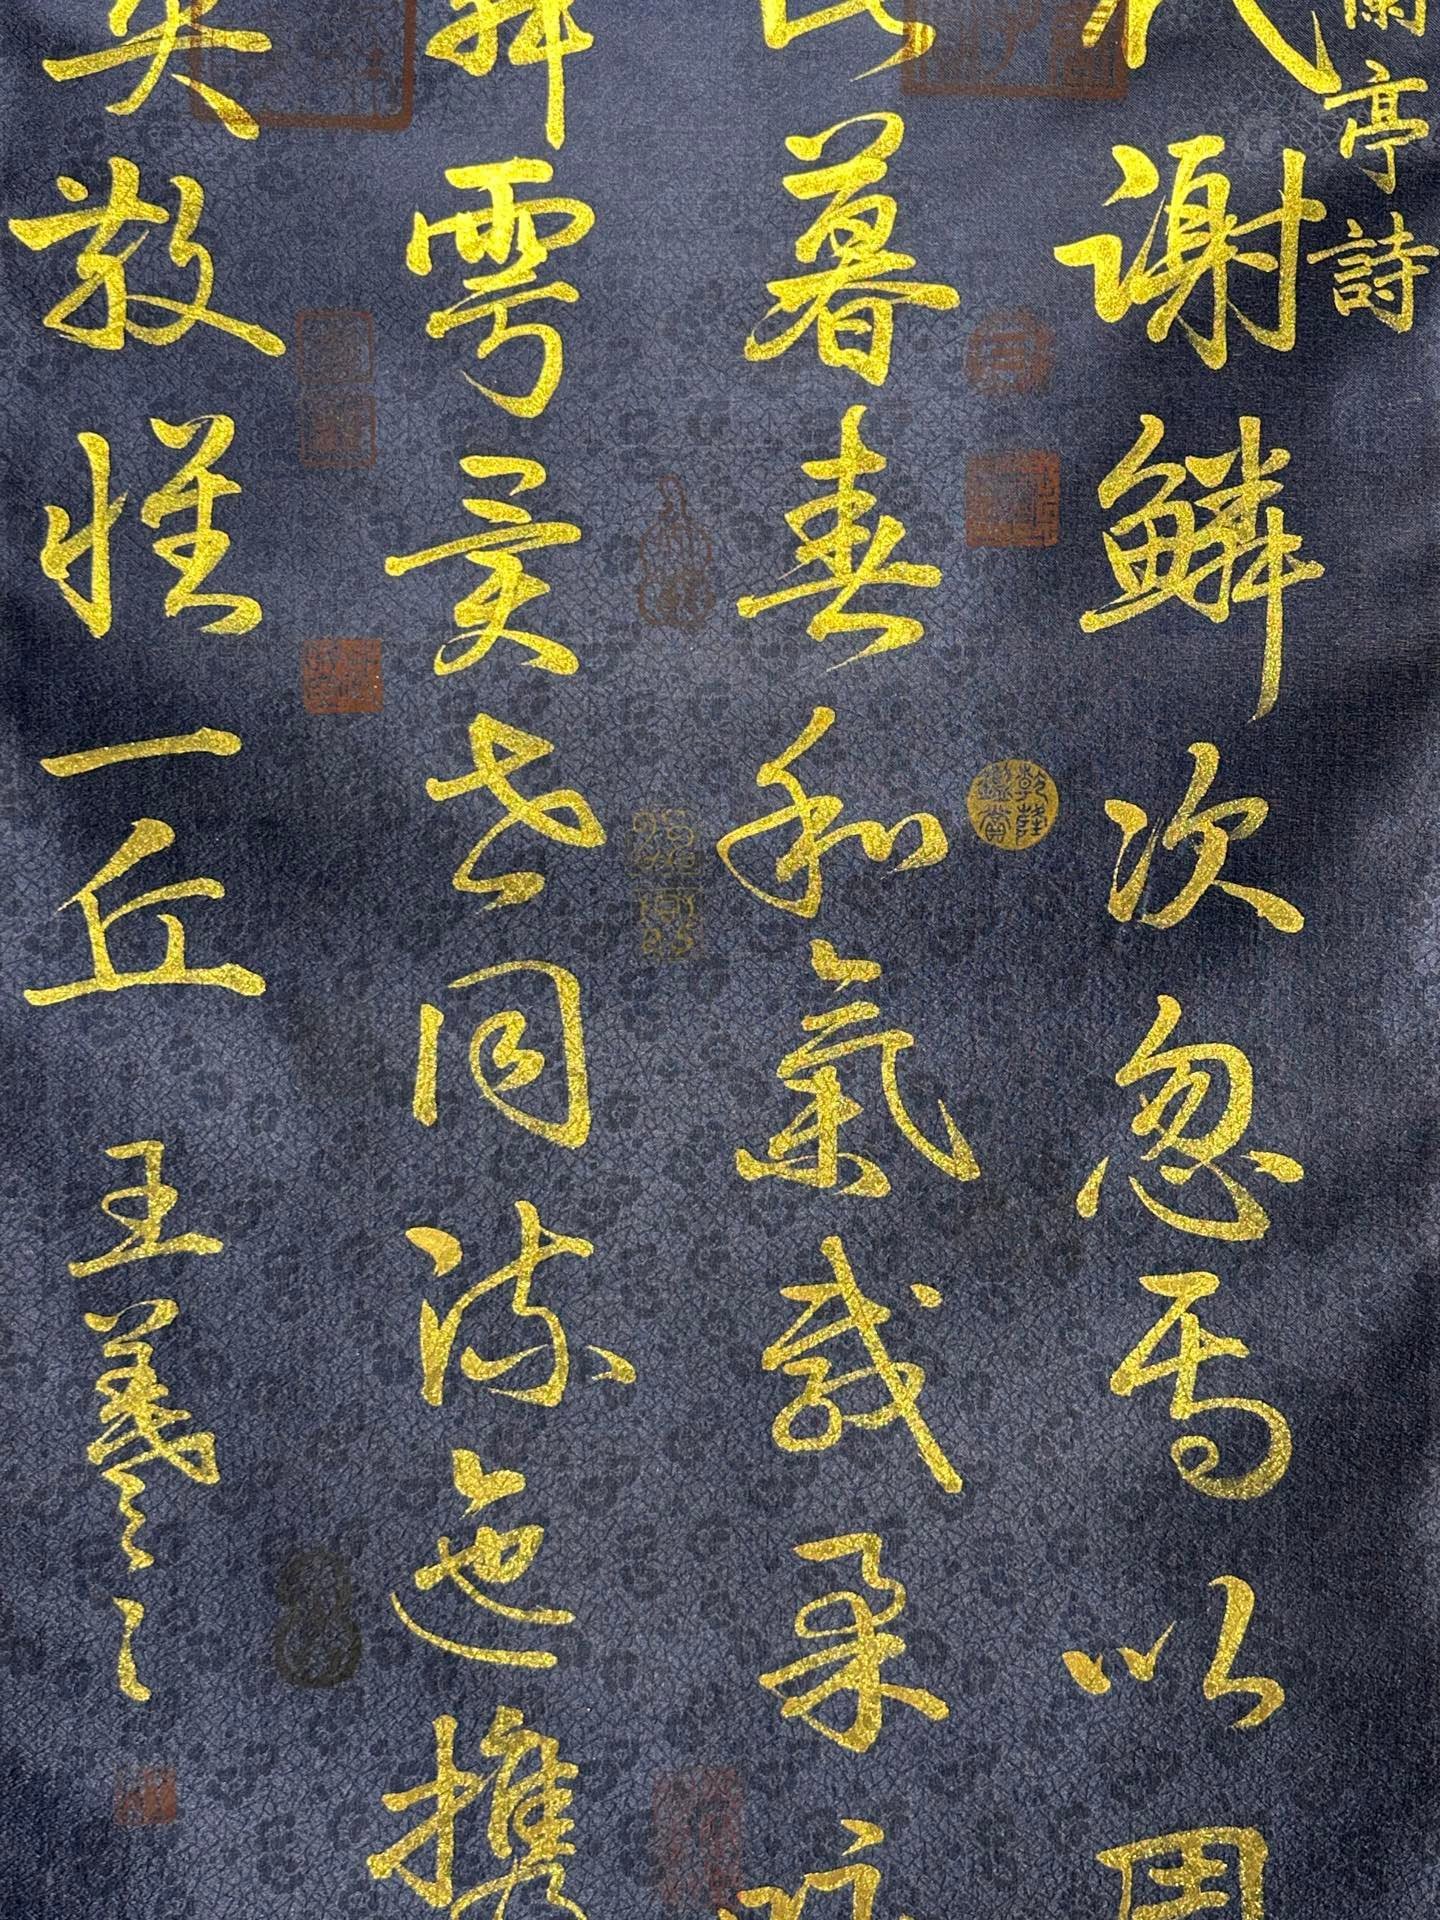 蘭亭詩
代謝鱗次忽焉以周
此暮春和氣載柔詠
舞雩異世同流迤攜
契散懷一丘 王羲之
乾隆鑑賞